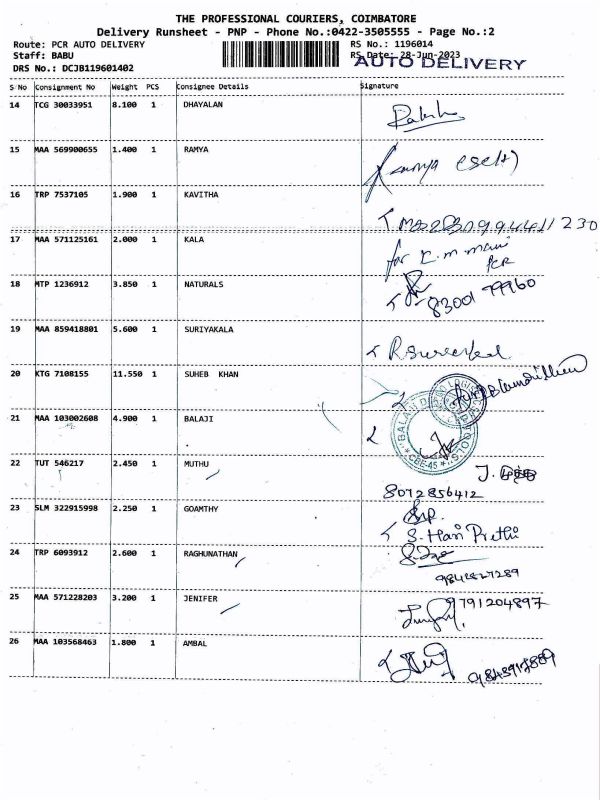 THE PROFESSIONAL COURIERS, COIMBATORE
Delivery Runsheet - PNP - Phone No.:0422-3505555 - Page No.:2
Route: PCR AUTO DELIVERY RS No.: 1196014
Staff: BABU RS Date: 28-Jun-2023
AUTO DELIVERY
DRS No.: DCJB119601402
S No Consignment No Weight PCS Consignee Details Signature
14 TCG 30033951 8.100 1 DHAYALAN
15 MAA 569900655 1.400 1 RAMYA
Ramya (self)
16 TRP 7537105 1.900 1 KAVITHA
17 MAA 571125161 2.000 1 KALA
for
PCR
18 MTP 1236912 3.850 1 NATURALS
8300199960
19 MAA 859418801 5.600 1 SURIYAKALA
20 KTG 7108155 11.550 1 SUHEB KHAN
21 MAA 103002608 4.900 1 BALAJI
CBE-45
22 TUT 546217 2.450 1 MUTHU
8072856412
23 SLM 322915998 2.250 1 GOAMTHY
S. Hari Prethi
24 TRP 6093912 2.600 1 RAGHUNATHAN
25 MAA 571228203 3.200 1 JENIFER
9791204897
26 MAA 103568463 1.800 1 AMBAL